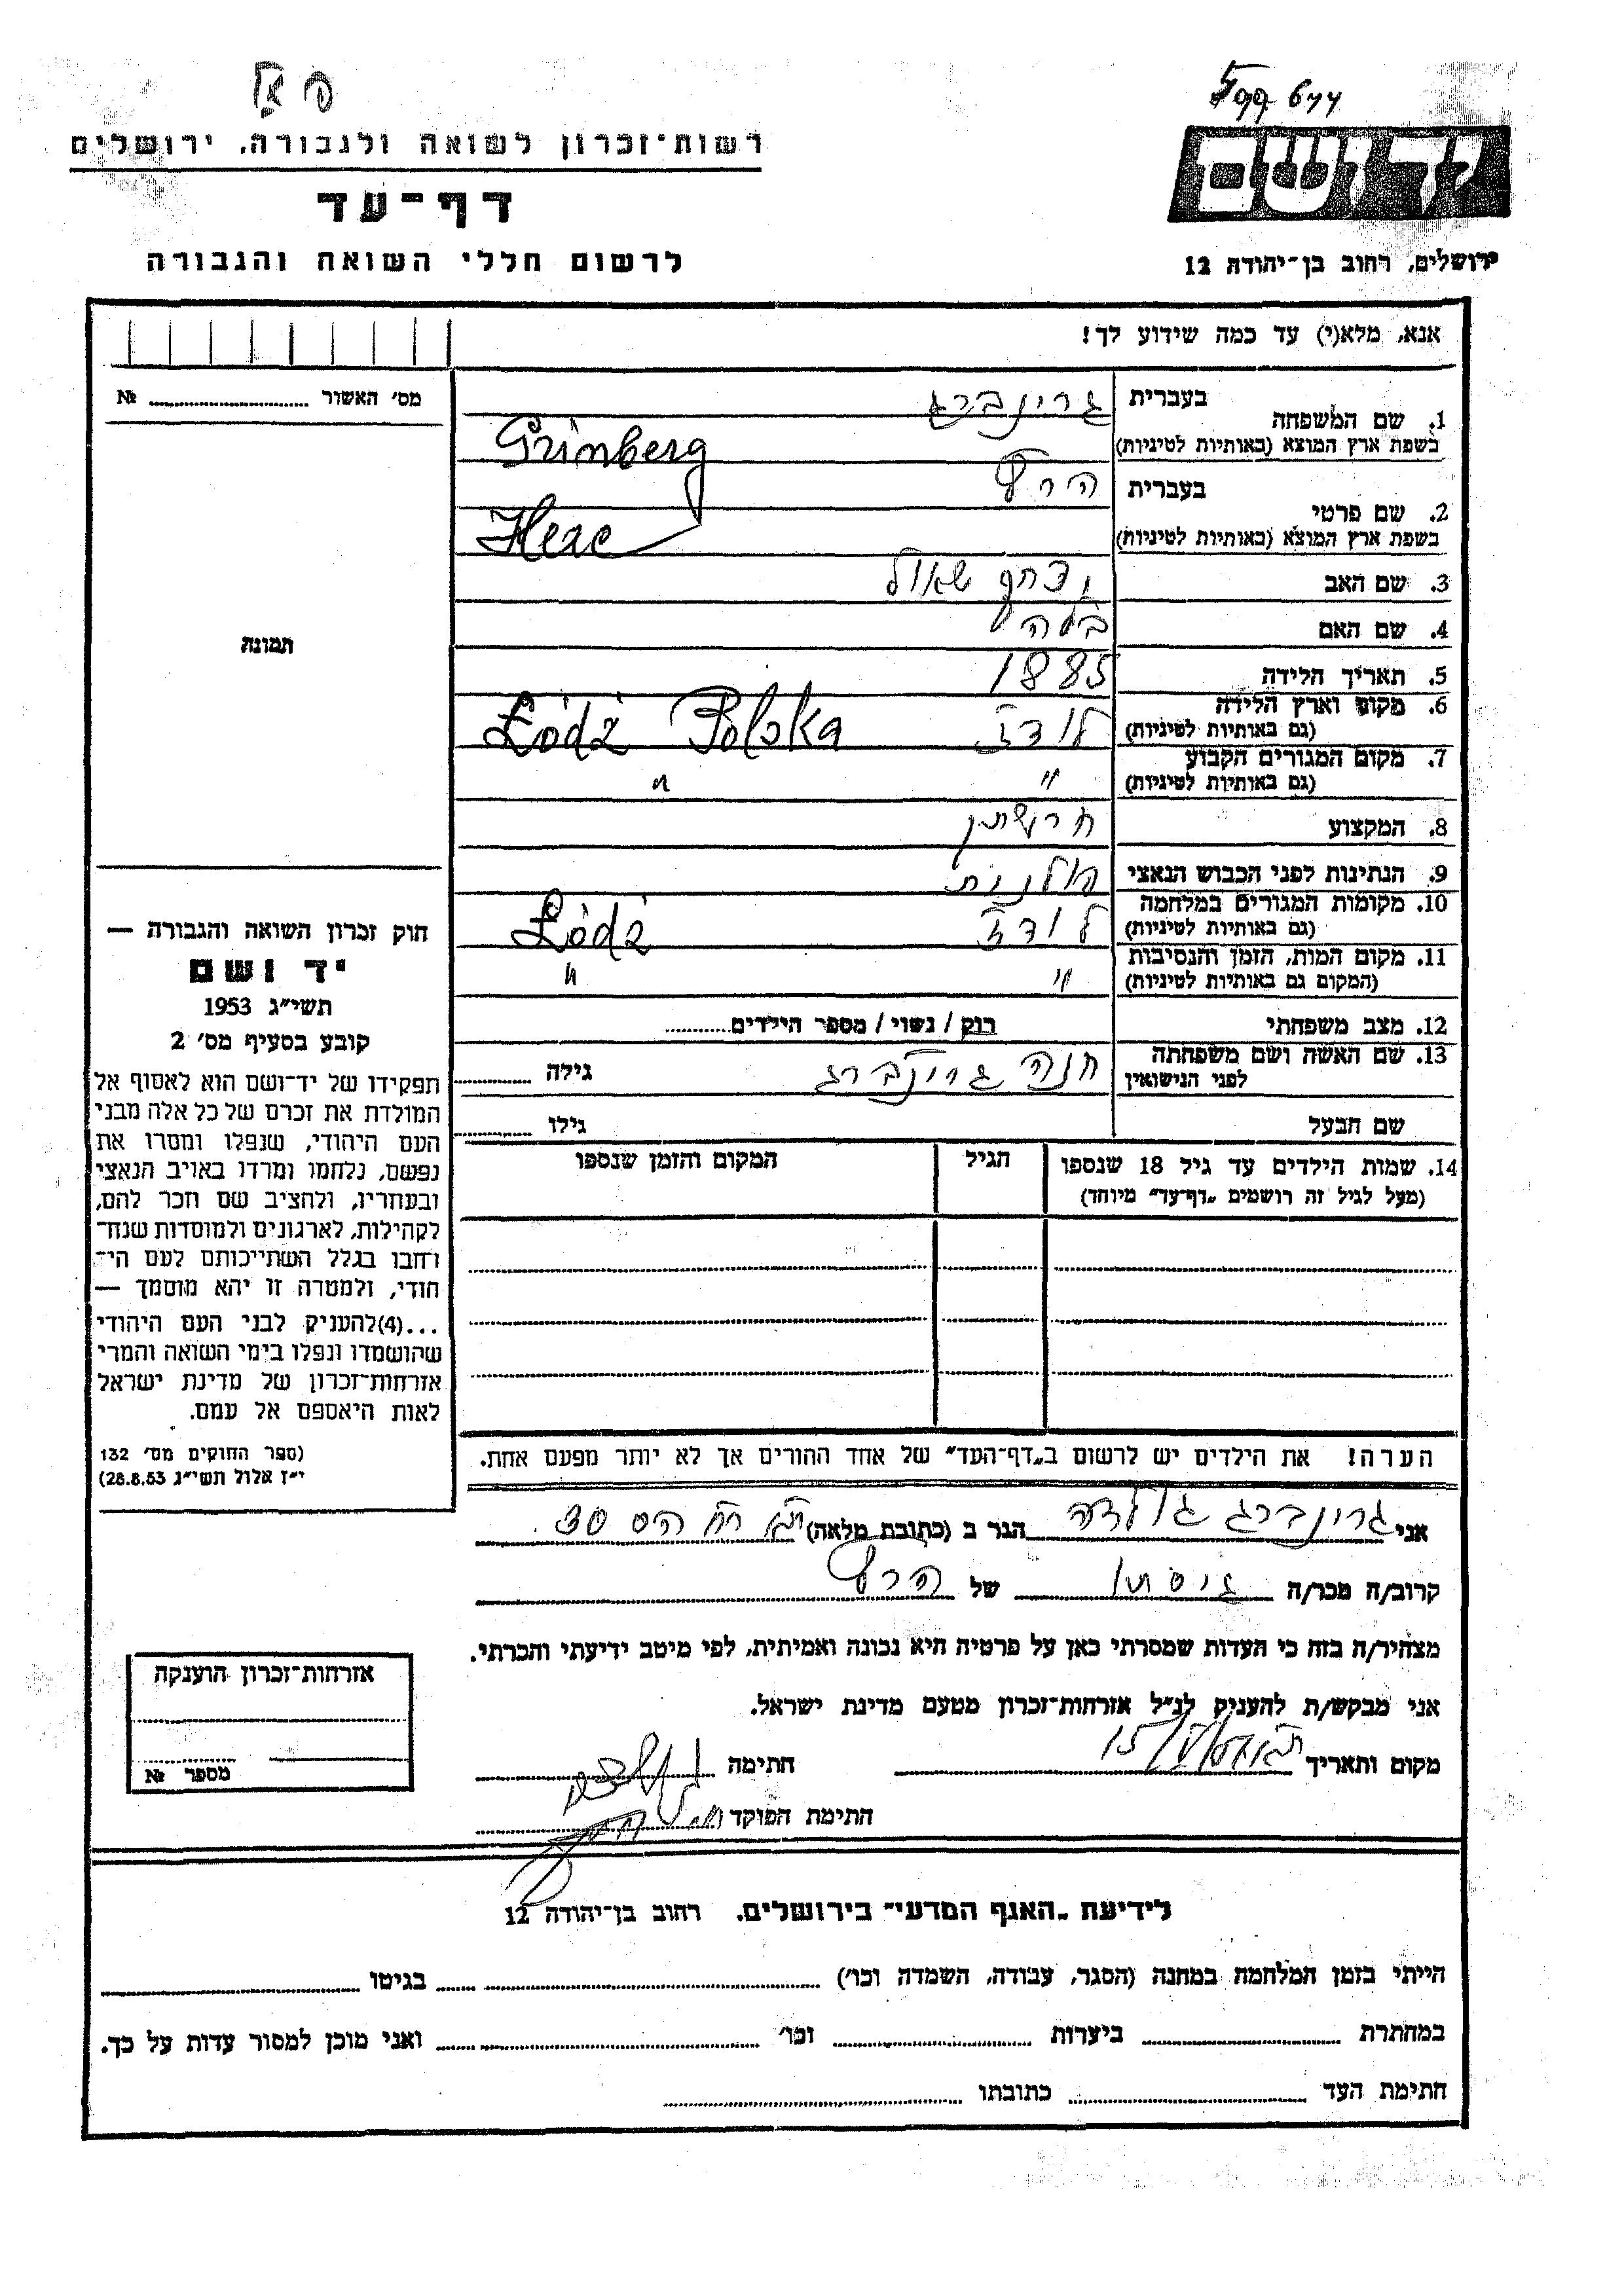 ידושם
ירושלים, רחוב בן־יהודה 12
רשות־זכרון לשואה ולגבורה, ירושלים
דף־עד
לרשום חללי השואה והגבורה
אנא, מלא(י) עד כמה שידוע לך!
מס׳ האשור № ..........
תמונה
1. שם המשפחה בעברית גרינברג
בשפת ארץ המוצא (באותיות לטיניות) Grinberg
2. שם פרטי בעברית הרץ
בשפת ארץ המוצא (באותיות לטיניות) Herc
3. שם האב יצחק שאול
4. שם האם בלה
5. תאריך הלידה 1885
6. מקום וארץ הלידה (גם באותיות לטיניות) לודז Łódź Polska
7. מקום המגורים הקבוע (גם באותיות לטיניות) " "
8. המקצוע חרושתן
9. הנתינות לפני הכבוש הנאצי פולנית
10. מקומות המגורים במלחמה (גם באותיות לטיניות) לודז Łódź
11. מקום המות, הזמן והנסיבות (המקום גם באותיות לטיניות) " "
12. מצב משפחתי רוק / נשוי / מספר הילדים..........
13. שם האשה ושם משפחתה לפני הנישואין חנה גרינברג גילה ..........
שם הבעל גילו ..........
14. שמות הילדים עד גיל 18 שנספו הגיל המקום והזמן שנספו
(מעל לגיל זה רושמים „דף־עד״ מיוחד)
הערה! את הילדים יש לרשום ב„דף־העד״ של אחד ההורים אך לא יותר מפעם אחת.
חוק זכרון השואה והגבורה —
יד ושם
תשי״ג 1953
קובע בסעיף מס׳ 2
תפקידו של יד־ושם הוא לאסוף אל
המולדת את זכרם של כל אלה מבני
העם היהודי, שנפלו ומסרו את
נפשם, נלחמו ומרדו באויב הנאצי
ובעוזריו, ולהציב שם וזכר להם,
לקהילות, לארגונים ולמוסדות שנח־
רבו בגלל השתייכותם לעם הי־
הודי, ולמטרה זו יהא מוסמך —
...(4) להעניק לבני העם היהודי
שהושמדו ונפלו בימי השואה והמרי
אזרחות־זכרון של מדינת ישראל
לאות היאספם אל עמם.
(ספר החוקים מס׳ 132
י״ז אלול תשי״ג 28.8.53)
אני גרינברג גולדה הגר ב (כתובת מלאה)
קרוב/ה מכר/ה גיסתו של הרץ
מצהיר/ה בזה כי העדות שמסרתי כאן על פרטיה היא נכונה ואמיתית, לפי מיטב ידיעתי והכרתי.
אני מבקש/ת להעניק לנ״ל אזרחות־זכרון מטעם מדינת ישראל.
מקום ותאריך חתימה
חתימת הפוקד
אזרחות־זכרון הוענקה
מספר №
לידיעת „האגף המדעי״ בירושלים, רחוב בן־יהודה 12
הייתי בזמן המלחמה במחנה (הסגר, עבודה, השמדה וכו׳) .......... בגיטו ..........
במחתרת .......... ביערות .......... וכו׳ .......... ואני מוכן למסור עדות על כך.
חתימת העד .......... כתובתו ..........